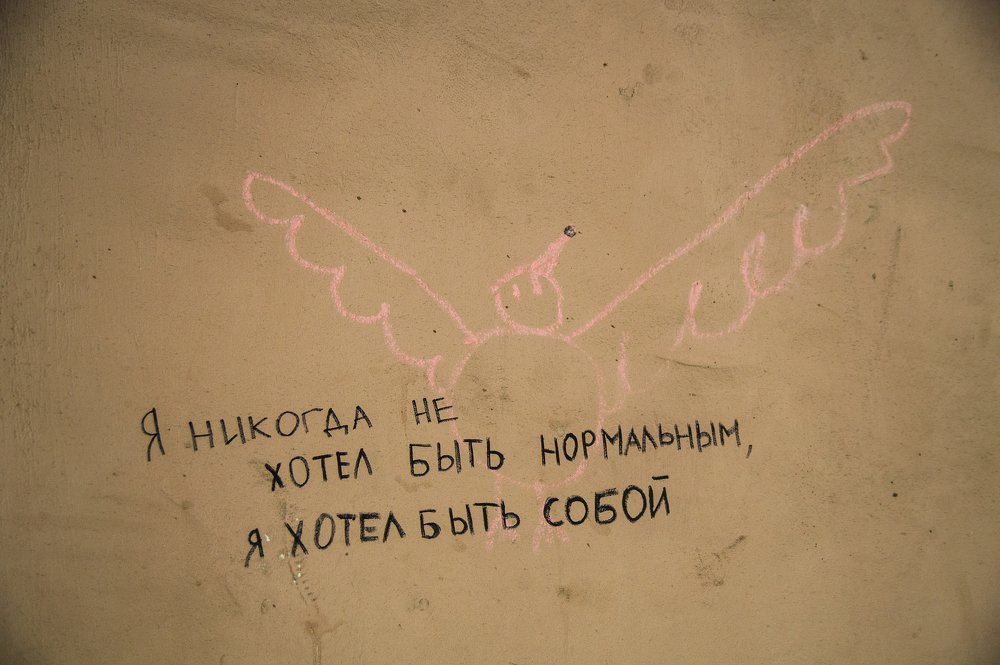 Я НИКОГДА НЕ
ХОТЕЛ БЫТЬ НОРМАЛЬНЫМ,
Я ХОТЕЛ БЫТЬ СОБОЙ